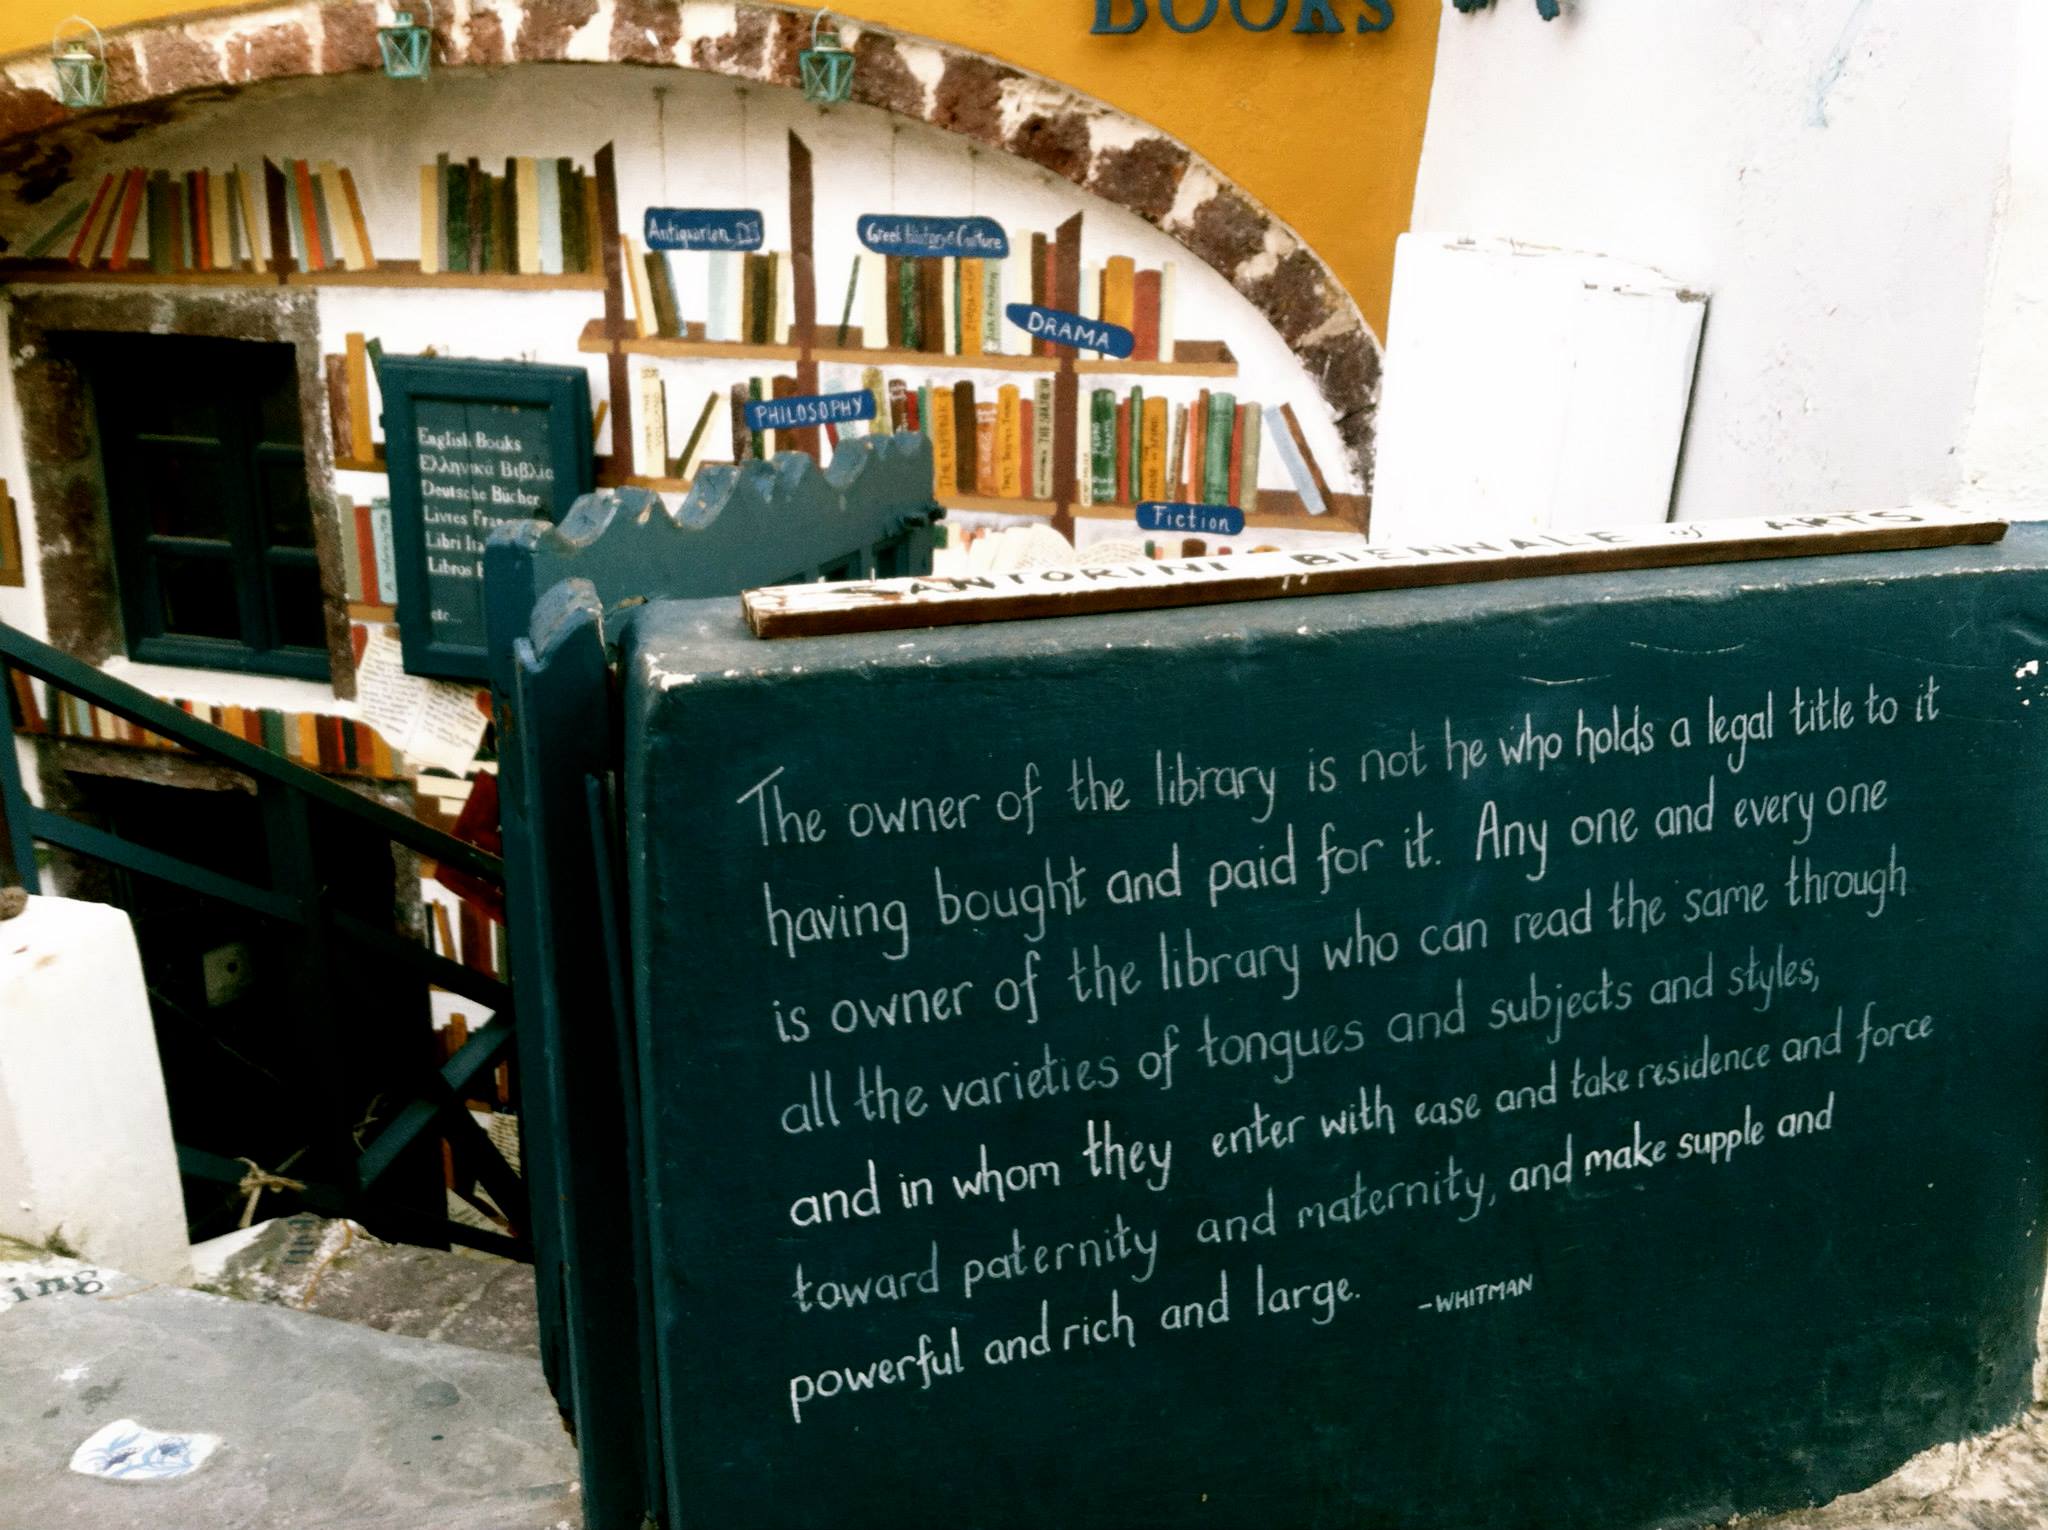 BOOKS
Antiquarian
Greek History & Culture
DRAMA
PHILOSOPHY
Fiction
English Books
Ελληνικά Βιβλία
Deutsche Bücher
Livres
Libri
Libros
etc...
SANTORINI BIENNALE of ARTS
The owner of the library is not he who holds a legal title to it
having bought and paid for it. Any one and every one
is owner of the library who can read the same through
all the varieties of tongues and subjects and styles,
and in whom they enter with ease and take residence and force
toward paternity and maternity, and make supple and
powerful and rich and large. -WHITMAN
ing